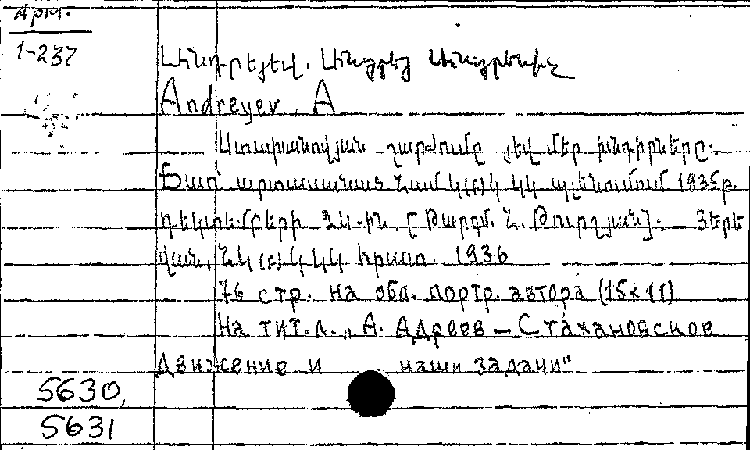 Арм.
1-237
Անդրեյեվ, Անդրեյ Անդրեեվիչ
Andreyev, A
Ստախանովյան շարժումը յեվ մեր խնդիրները.
Ճառ՝ արտասանած Համ Կ(բ)Կ ԿԿ պլենումում 1935թ.
դեկտեմբերի 22-ին. [Թարգմ. Հ. Թուրշյան]. Յերե
վան, ՀԿ(բ)Կ ԿԿ հրատ. 1936
76 стр. на обл. портр. автора (15x11)
На тит.л. „А. Адреев – Стахановское
движение и наши задачи"
5630,
5631